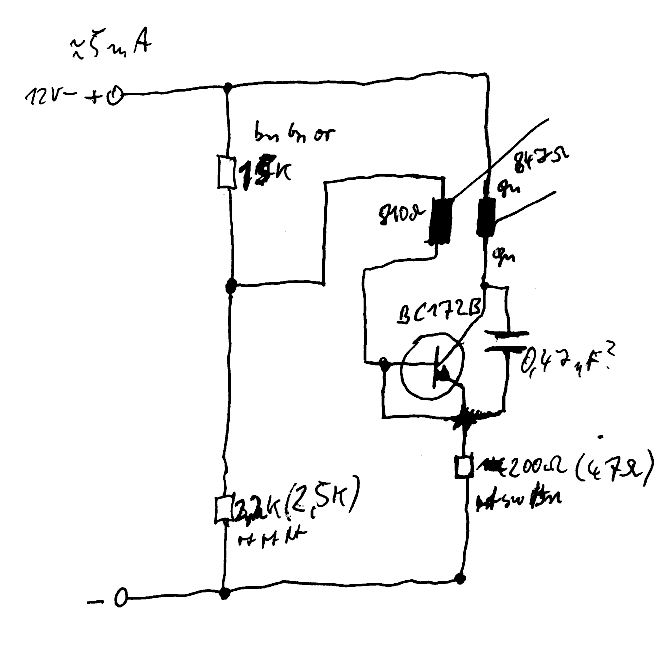 ≈5mA
12V- +
bn bn or
15K
810Ω
847Ω
gn
gn
BC172B
0,47µF?
200Ω (47Ω)
rt sw bn
2,2K (2,5K)
rt rt rt
-